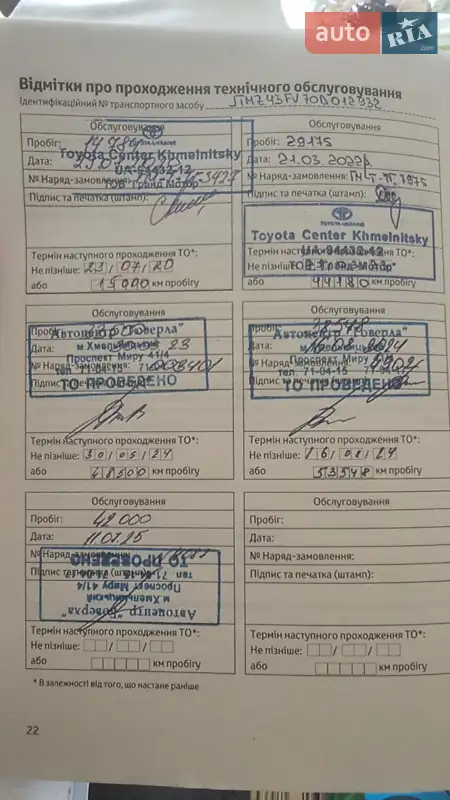 auto RIA.com
Відмітки про проходження технічного обслуговування
Ідентифікаційний № транспортного засобу JTMZ43FV70D012932
Обслуговування
Пробіг:
Дата:
№ Наряд-замовлення:
Підпис та печатка (штамп):
Toyota Center Khmelnitsky
UA-94432-12
ТОВ "Гранд Мотор"
Термін наступного проходження ТО*:
Не пізніше: 23/07/20
або 15000 км пробігу
Обслуговування
Пробіг: 29175
Дата: 21.03.2022р.
№ Наряд-замовлення:
Підпис та печатка (штамп):
Toyota Center Khmelnitsky
UA-94432-12
ТОВ "Гранд Мотор"
Термін наступного проходження ТО*:
Не пізніше:
або 44180 км пробігу
Обслуговування
Пробіг:
Дата: 23
№ Наряд-замовлення:
Підпис
Автоцентр "Говерла"
м.Хмельницький
Проспект Миру 41/4
тел. 71-04-15
ТО ПРОВЕДЕНО
Термін наступного проходження ТО*:
Не пізніше: 30/05/24
або 48500 км пробігу
Обслуговування
Пробіг: 38548
Дата: 2024
№ Наряд-замовлення:
Підпис
Автоцентр "Говерла"
м.Хмельницький
Проспект Миру
тел. 71-04-15
ТО ПРОВЕДЕНО
Термін наступного проходження ТО*:
Не пізніше: 16/08/24
або 53548 км пробігу
Обслуговування
Пробіг: 42000
Дата: 11.07.25
№ Наряд-замовлення:
Підпис та печатка (штамп):
Автоцентр "Говерла"
м.Хмельницький
Проспект Миру 41/4
тел. 71-04-15
ТО ПРОВЕДЕНО
Термін наступного проходження ТО*:
Не пізніше:
або км пробігу
Обслуговування
Пробіг:
Дата:
№ Наряд-замовлення:
Підпис та печатка (штамп):
Термін наступного проходження ТО*:
Не пізніше:
або км пробігу
* В залежності від того, що настане раніше
22